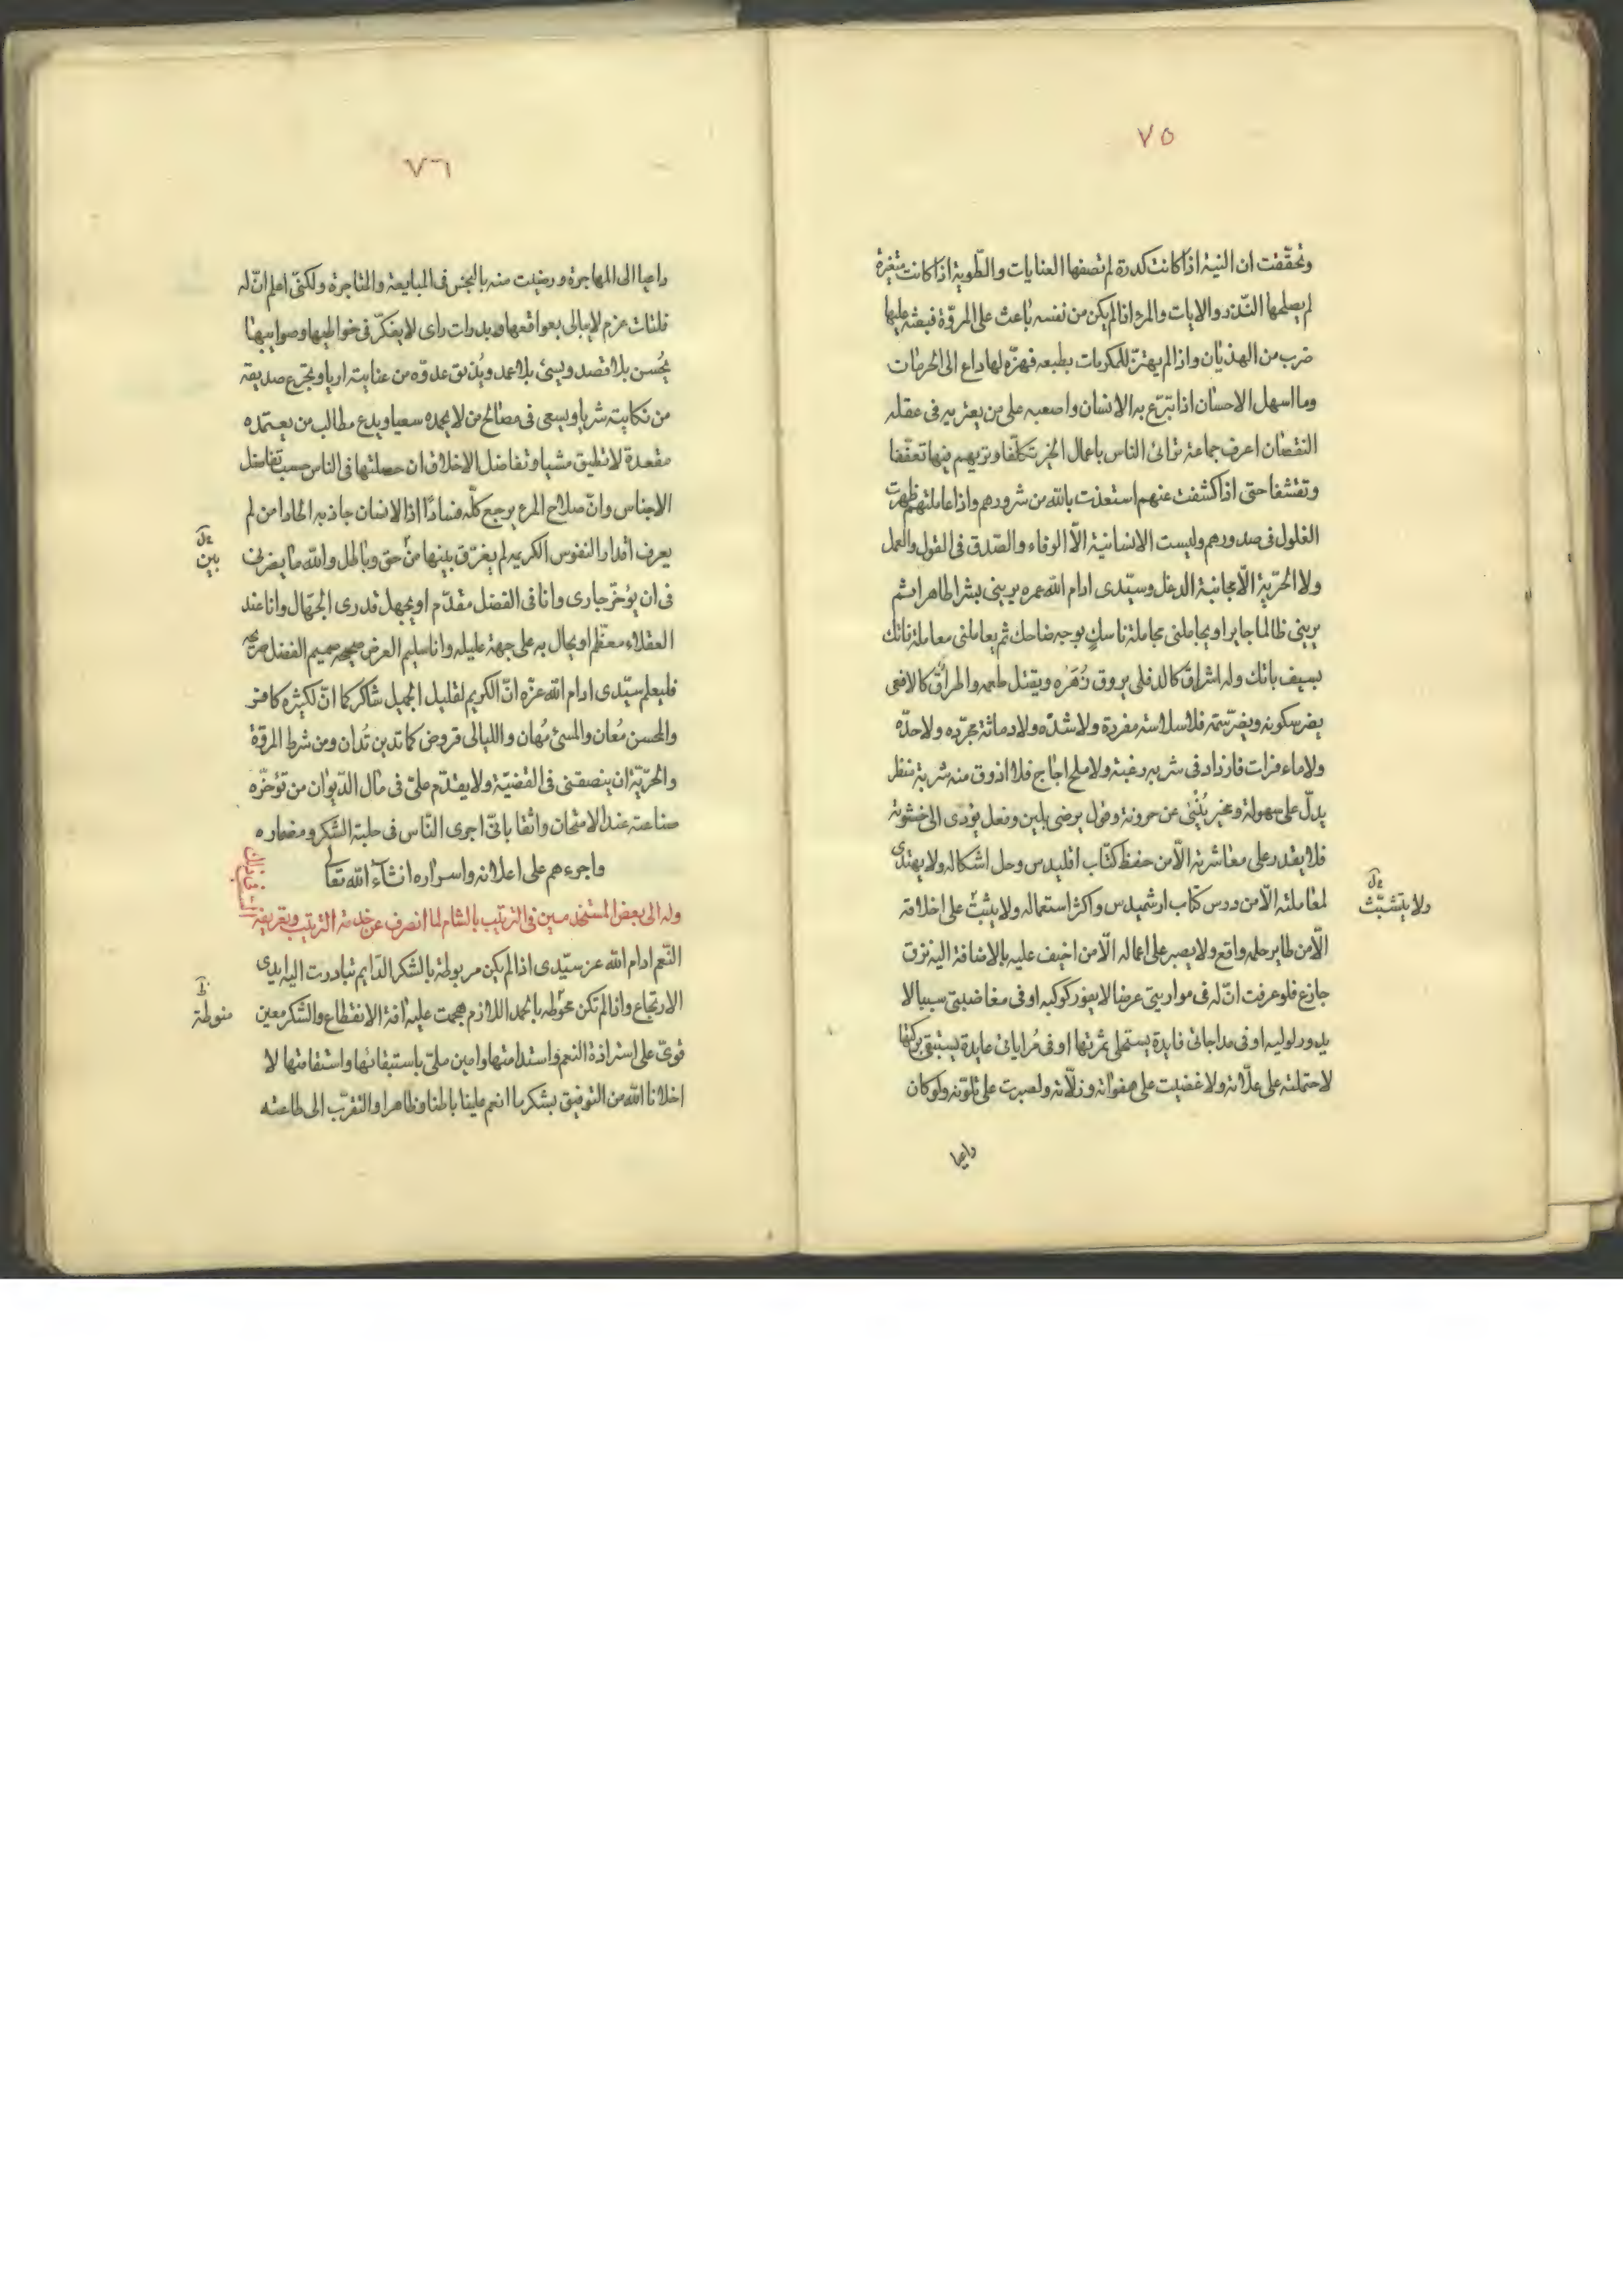 ٧٥
وتحققت ان النية اذا كانت كدرة لم تصفها العنايات والطّوية اذا كانت متغيرة
لم يصلحها النّذر والايات والمرء اذا لم يكن من نفسه باعث على المروّة فبعثه عليها
ضرب من الهذيان واذا لم يهتزّ للمكرمات بطبعه فهزّه لها داع الى الحرمات
وما اسهل الاحسان اذا تبرّع به الانسان واصعبه على من يعتريه فى عقله
النقصان اعرف جماعة ترائى الناس باعمال الخير تكلّفا وتريهم فيها تعفّفا
وتقشفا حتى اذا كشفت عنهم استعذت بالله من شرورهم واذا عاملتهم ظهرت
الغلول فى صدورهم وليست الانسانية الّا الوفاء والصّدق فى القول والعمل
ولا الحرّية الّا مجانبة الدغل وسيّدى ادام الله عمره يرينى بشرا طاهرا ثم
يرينى ظالما جايرا ويجاملنى مجاملة ناسك بوجه ضاحك ثم يعاملنى معاملة فاتك
بسيف باتك وله اشراق كالدفلى يروق زَهَره ويقتل طعمه واطراق كالافعى
يضر سكونه ويضرّ سمّه فلا سلاسته مفردة ولا شدّه ولا دماثة مجرّده ولا حدّه
ولا ماء فرات فازداد فى شربه رغبة ولا ملح اجاج فلا اذوق منه شربة منظر
يدلّ على سهولة ومخبر يُنْبِئ عن حرونة وقول يرضى بلين وفعل يؤدّى الى خشونة
فلا يقدر على معاشرته الّا من حفظ كتاب اقليدس وحل اشكاله ولا يهتدى
لمعاملته الّا من درس كتاب ارشميدس واكثر استعماله ولا يثبّث على اخلاقه
ولا يتشبّث
الّا من طاير حلمه واقع ولا يصبر على اعماله الّا من احنف عليه بالاضافة اليه نزق
جازع فلو عرفت انّ له فى مواربتى عرضا لا يغور كوكبه او فى مغاضبتى سببا لا
يدور لوليبه او فى مداجاتى فايدة يستحلى ثمرتها او فى مُراياتى عايدة يستبقى بركتها
لاحتملته على علّاته ولاغضيت على هفواته وزلّاته ولصبرت على تلوّنه ولو كان
داعيا
٧٦
داعيا الى المهاجرة ورضيت منه بالبخس فى المبايعة والمتاجرة ولكنّى اعلم انّ له
فلتات عزم لا يبالى بعواقعها وبدرات راى لا يفكّر فى خواطيها وصوايبها
يُحسن بلا قصد ويسئ بلا عمد ويُذيق عدوّه من عنايته اريا ويجرّع صديقه
من نكايته شريا ويسعى فى مصالح من لا يحمده سعيا ويدع مطالب من يعتمده
مقعدة لا تطيق مشيا وتفاضل الاخلاق ان حصلتها فى الناس حسب تفاضل
الاجناس وانّ صلاح المرء يرجع كلّه فسادًا اذا الانسان جاذبه الحدا من لم
يعرف اقدار النفوس الكريمه لم يفرّق بينها من حق وباطل والله ما يضرنى
بين
فى ان يؤخّر جارى وانا فى الفضل مقدّم او يجهل قدرى الجهّال وانا عند
العقلاء معظّم او يحال به على جهة عليله وانا سليم العرض صحيحه صميم الفضل صريحه
فليعلم سيّدى ادام الله عزّه انّ الكريم لقليل الجميل شاكر كما انّ لكثيره كافر
والمحسن مُعان والمسئ مُهان والليالى قروض كما تدين تُدان ومن شرط المروّة
والحرّيّة ان ينصفنى فى القضيّة ولا يقدّم علىّ فى مال الدّيوان من تؤخّره
صناعته عند الامتحان واثقا بانّى اجرى النّاس فى حلبة الشكر ومضماره
واجرءهم على اعلانه واسراره انشاء الله تعالى
وله الى بعض المستخدمين فى الترتيب بالشام لما انصرف عن خدمة الترتيب وتعريفه
النّعم ادام الله عز سيّدى اذا لم يكن مربوطة بالشكر الدّايم تبادرت اليه ايدى
الارتجاع واذا لم تكن محوّطه بالحمد اللازم هجمت عليه افة الانقطاع والشكر معين
منوطة
قوىّ على استزادة النعم واستدامتها وامين ملىّ باستبقائها واستقامتها لا
اخلانا الله من التوفيق بشكر ما انعم علينا باطنا وظاهرا والتقرّب الى طاعته